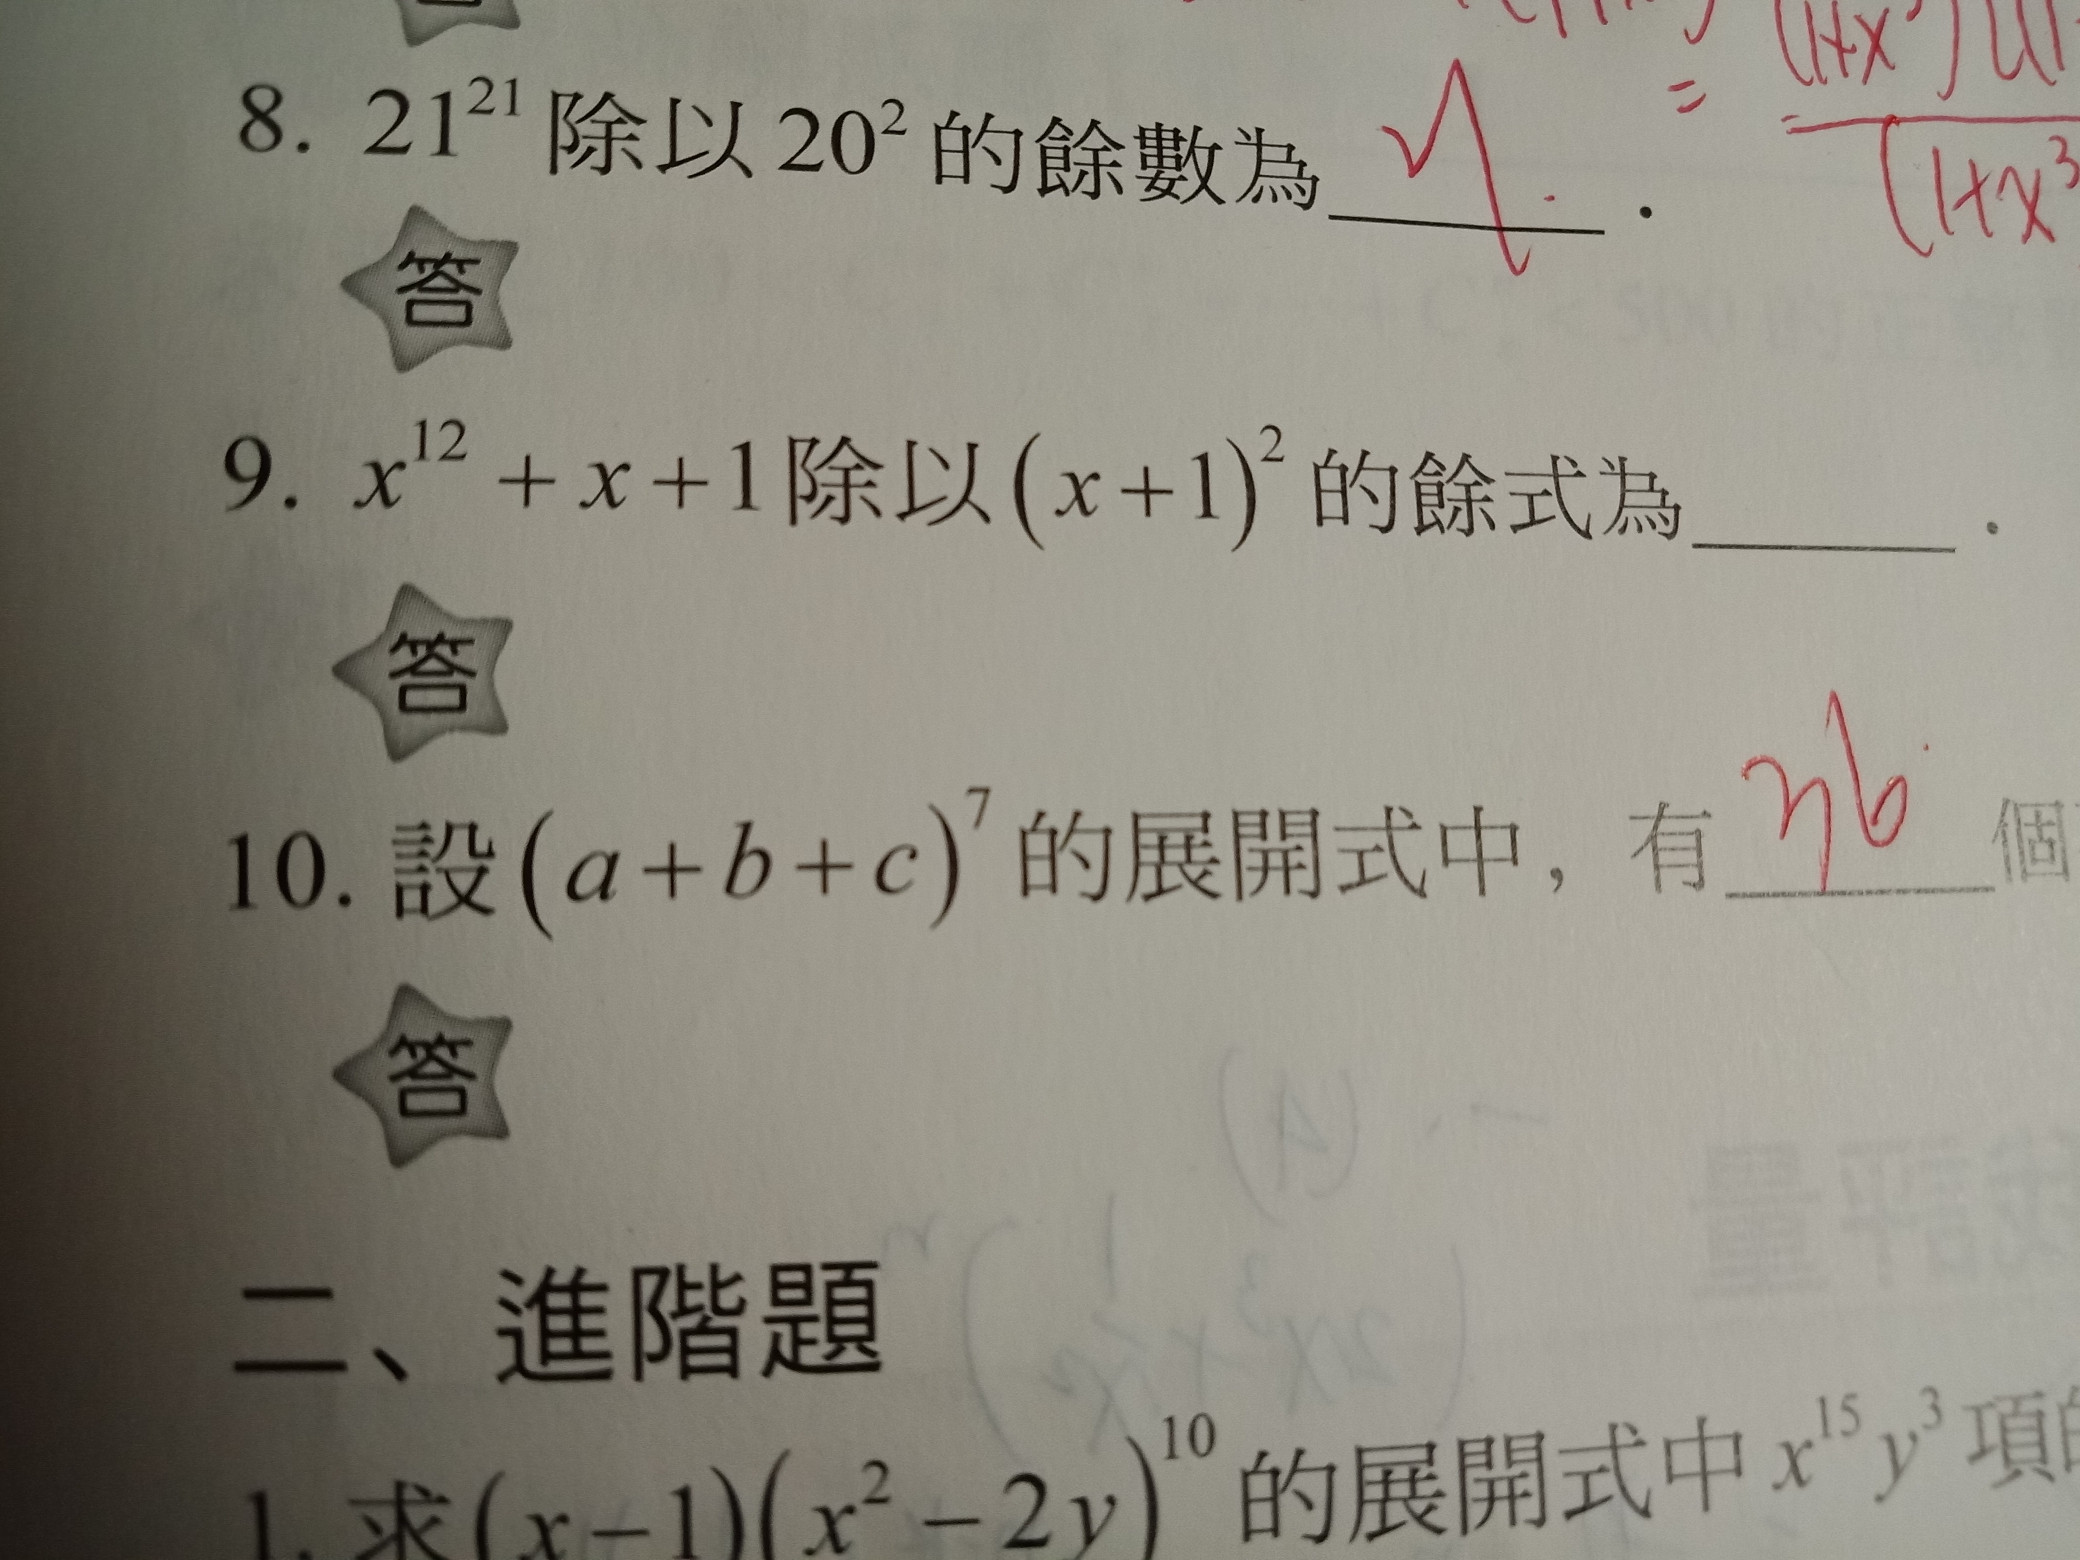 = (1+x³)
(1+x³
8. 21²¹ 除以 20² 的餘數為____.
答
9. x¹² + x + 1 除以 (x + 1)² 的餘式為____.
答
10. 設 (a + b + c)⁷ 的展開式中，有 36 個
答
二、進階題
1. 求 (x − 1)(x² − 2y)¹⁰ 的展開式中 x¹⁵y³ 項的